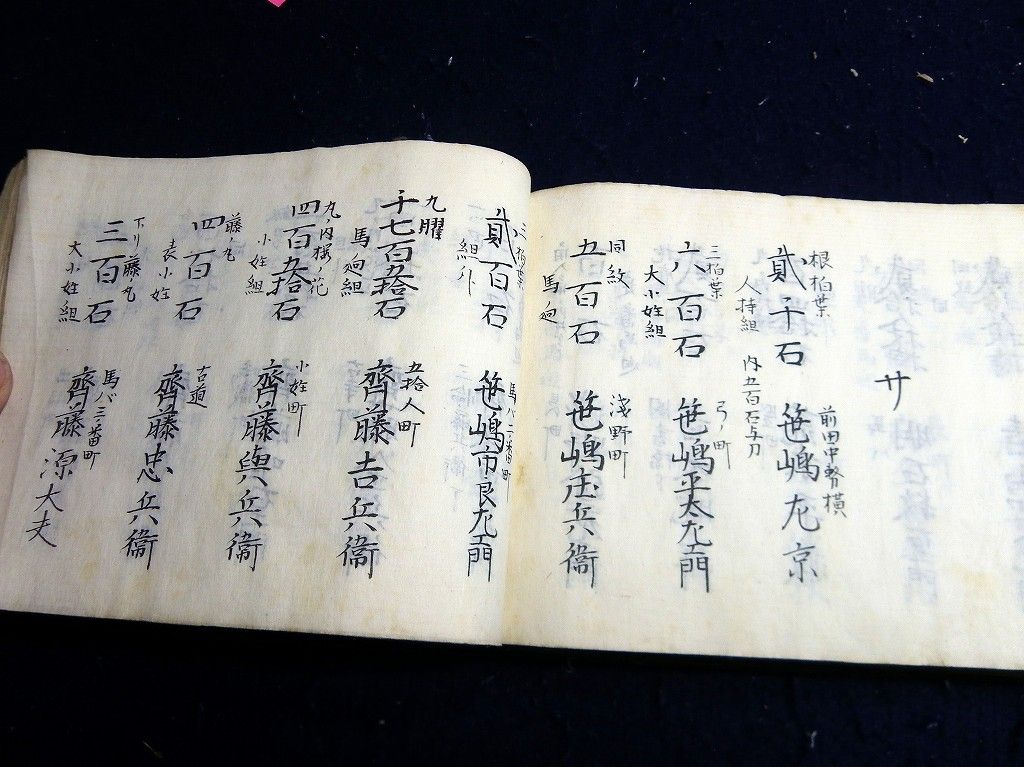 サ
根柏葉
貳千石
人持組 内五百石与力
前田中務横
笹嶋左京
三柏葉
六八百石
大小姓組
弓ノ町
笹嶋平太左エ門
同紋
五百石
馬廻
浅野町
笹嶋庄兵衛
三柏葉
貳百石
組外
馬バ二番町
笹嶋市良左エ門
九曜
千七百五拾石
馬廻組
五拾人町
齊藤吉兵衛
丸ノ内桜ノ花
四百五拾石
小姓組
小姓町
齊藤與兵衛
藤ノ丸
四百石
表小姓
古道
齊藤忠兵衛
下リ藤丸
三百石
大小姓組
馬バ三番町
齊藤源大夫